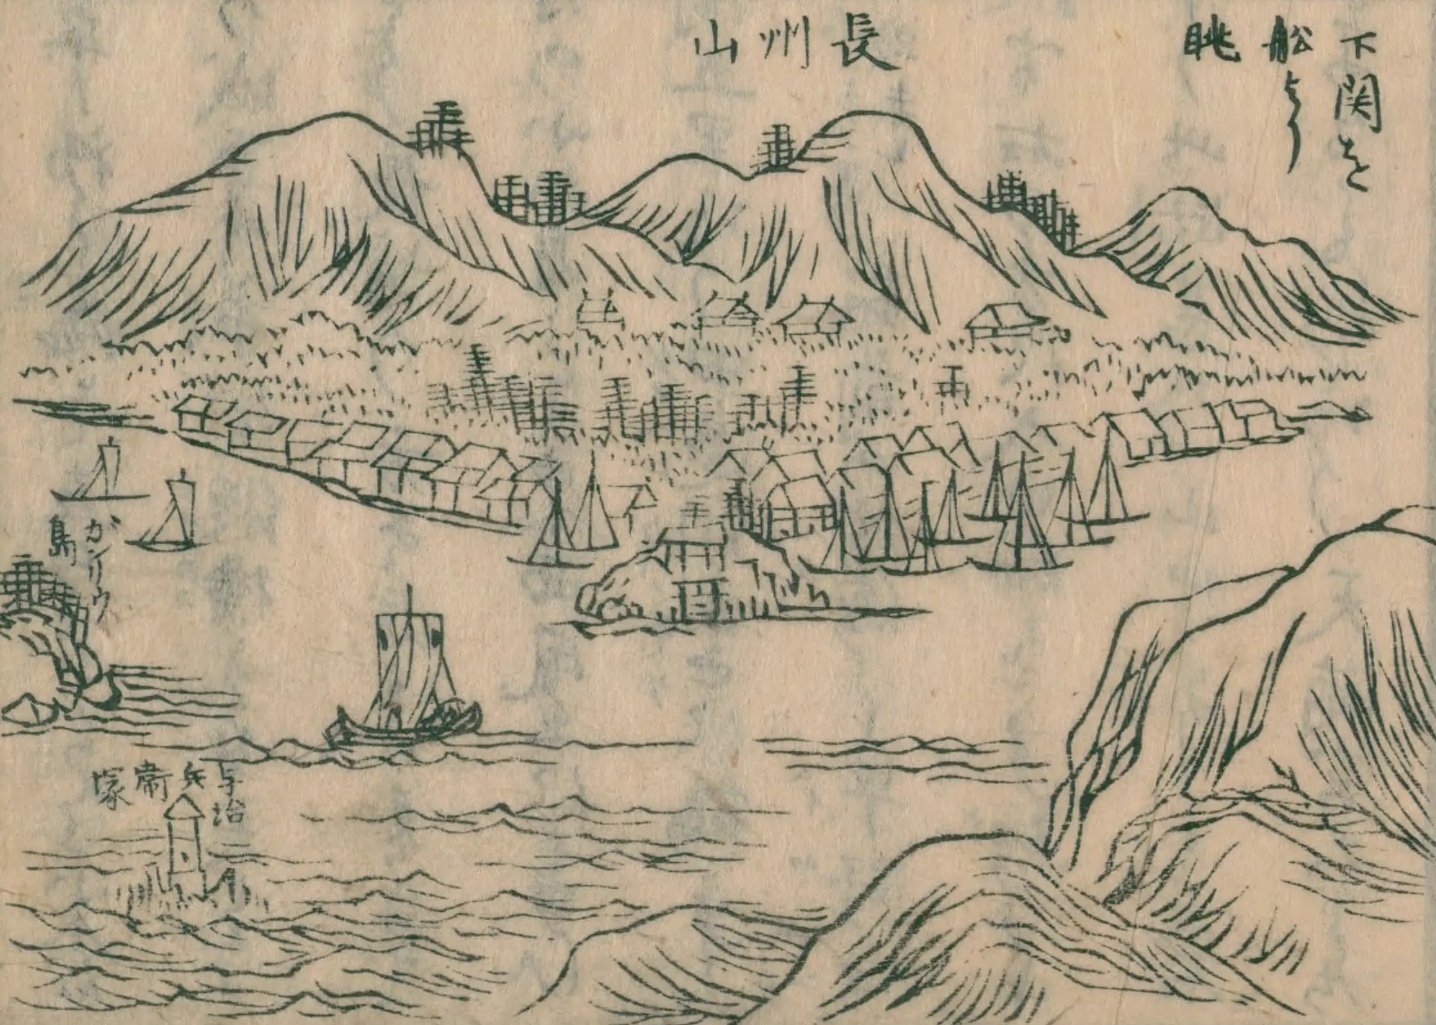 下関を
船より
眺
長州山
ガンリウ
島
与治
兵衛
塚